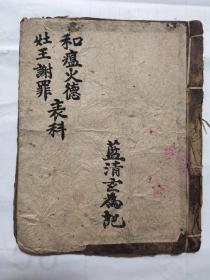 和瘟火德
灶王謝罪
表科
藍清玄為記